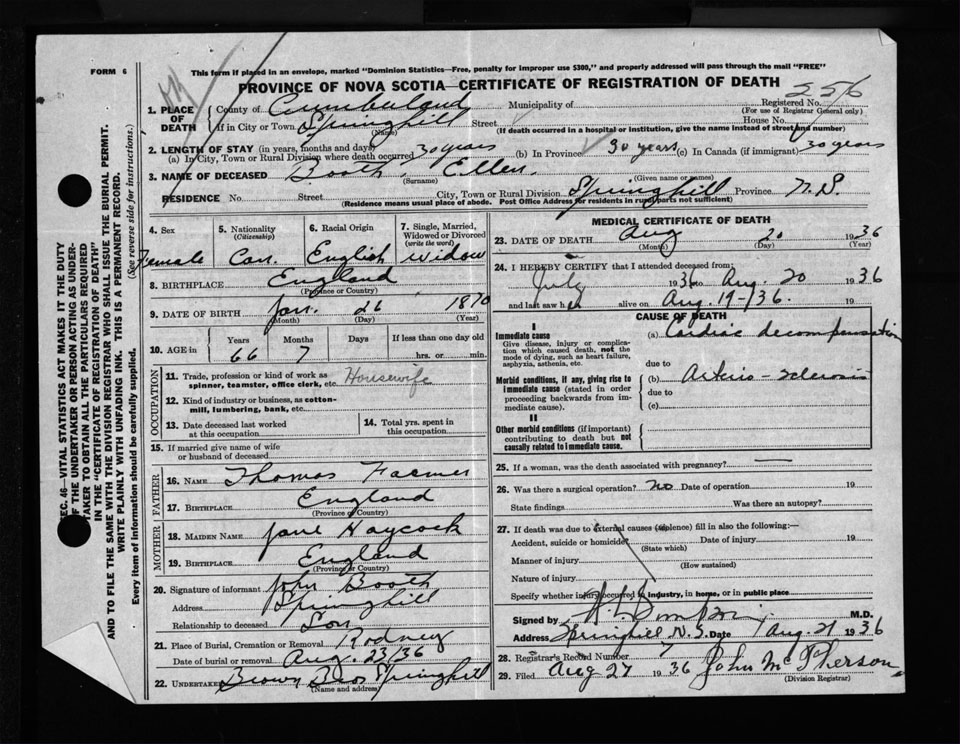 FORM 6
This form if placed in an envelope, marked "Dominion Statistics—Free, penalty for improper use $300," and properly addressed will pass through the mail "FREE"
PROVINCE OF NOVA SCOTIA—CERTIFICATE OF REGISTRATION OF DEATH
1. PLACE OF DEATH County of Cumberland Municipality of Registered No. 256
(For use of Registrar General only)
If in City or Town Springhill Street House No.
(Name) (If death occurred in a hospital or institution, give the name instead of street and number)
2. LENGTH OF STAY (in years, months and days)
(a) In City, Town or Rural Division where death occurred 30 years (b) In Province 30 years (c) In Canada (if immigrant) 30 years
3. NAME OF DECEASED Booth, Ellen.
(Surname) (Given name or names)
RESIDENCE No. Street City, Town or Rural Division Springhill Province N.S.
(Residence means usual place of abode. Post Office Address for residents in rural parts not sufficient)
4. Sex 5. Nationality (Citizenship) 6. Racial Origin 7. Single, Married, Widowed or Divorced (write the word)
Female Can. English Widow
8. BIRTHPLACE England
(Province or Country)
9. DATE OF BIRTH Jan. 26 1870
(Month) (Day) (Year)
10. AGE in Years Months Days If less than one day old
66 7 hrs. or min.
OCCUPATION
11. Trade, profession or kind of work as spinner, teamster, office clerk, etc. Housewife
12. Kind of industry or business, as cotton-mill, lumbering, bank, etc.
13. Date deceased last worked at this occupation 14. Total yrs. spent in this occupation
15. If married give name of wife or husband of deceased
FATHER
16. NAME Thomas Farmer
17. BIRTHPLACE England
(Province or Country)
MOTHER
18. MAIDEN NAME Jane Haycock
19. BIRTHPLACE England
(Province or Country)
20. Signature of informant John Booth
Address Springhill
Relationship to deceased Son
21. Place of Burial, Cremation or Removal Rodney
Date of burial or removal Aug. 23/36
22. UNDERTAKER Brown Bros Springhill
(Name and address)
MEDICAL CERTIFICATE OF DEATH
23. DATE OF DEATH Aug 20 1936
(Month) (Day) (Year)
24. I HEREBY CERTIFY that I attended deceased from:
July 1936 to Aug. 20 1936
and last saw her alive on Aug. 19-'36. 19
CAUSE OF DEATH
I
Immediate cause (a) Cardiac decompensation
Give disease, injury or complication which caused death, not the mode of dying, such as heart failure, asphyxia, asthenia, etc.
due to
Morbid conditions, if any, giving rise to immediate cause (stated in order proceeding backwards from immediate cause). (b) Arterio-sclerosis
due to
(c)
II
Other morbid conditions (if important) contributing to death but not causally related to immediate cause.
25. If a woman, was the death associated with pregnancy? —
26. Was there a surgical operation? no Date of operation 19
State findings Was there an autopsy?
27. If death was due to external causes (violence) fill in also the following:—
Accident, suicide or homicide Date of injury 19
(State which)
Manner of injury
(How sustained)
Nature of injury
Specify whether injury occurred in industry, in home, or in public place
Signed by M.D.
Address Springhill N.S. Date Aug. 21 1936
28. Registrar's Record Number 7
29. Filed Aug 27 1936 John McPherson
(Division Registrar)
SEC. 46—VITAL STATISTICS ACT MAKES IT THE DUTY
OF THE UNDERTAKER OR PERSON ACTING AS UNDERTAKER TO OBTAIN ALL THE PARTICULARS REQUIRED
IN THE "CERTIFICATE OF REGISTRATION OF DEATH"
AND TO FILE THE SAME WITH THE DIVISION REGISTRAR WHO SHALL ISSUE THE BURIAL PERMIT.
WRITE PLAINLY WITH UNFADING INK. THIS IS A PERMANENT RECORD.
Every item of information should be carefully supplied. (See reverse side for instructions.)